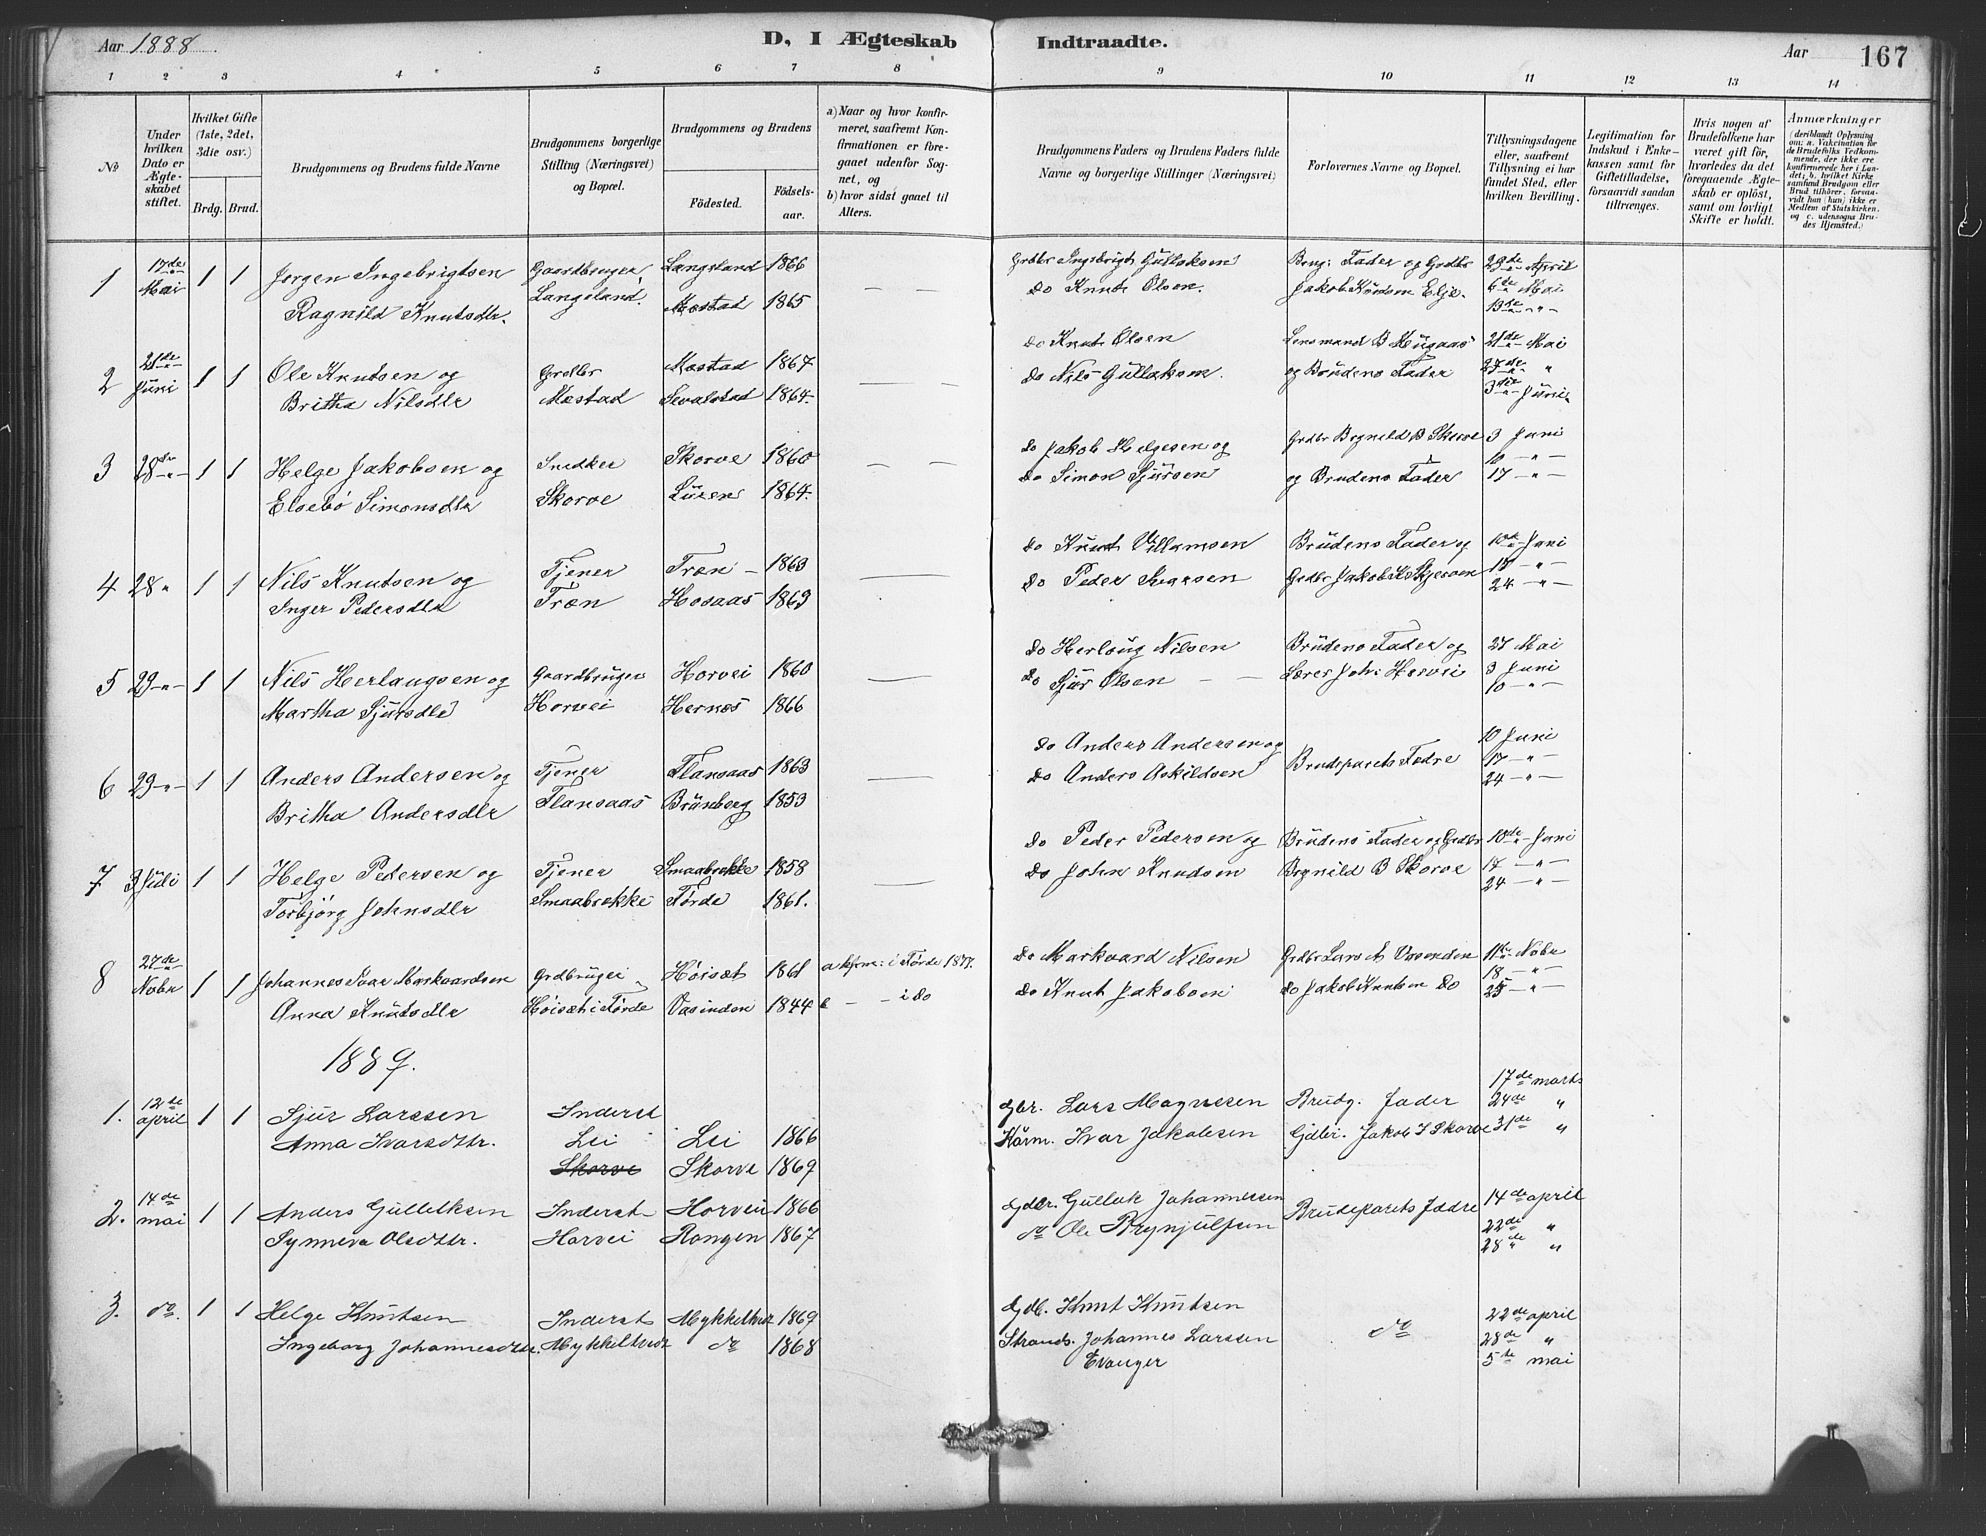 Aar 1888
D, I Ægteskab Indtraadte.
Aar
167
1 2 3 4 5 6 7 8 9 10 11 12 13 14
No
Under hvilken Dato er Ægteskabet stiftet.
Hvilket Gifte (1ste, 2det, 3die osv.)
Brdg. Brud.
Brudgommens og Brudens fulde Navne
Brudgommens borgerlige Stilling (Næringsvei) og Bopæl.
Brudgommens og Brudens
Fødested.
Fødsels-aar.
a) Naar og hvor konfirmeret, saafremt Konfirmationen er foregaaet udenfor Sognet, og
b) hvor sidst gaaet til Alters.
Brudgommens Faders og Brudens Faders fulde Navne og borgerlige Stillinger (Næringsvei)
Forlovernes Navne og Bopæl.
Tillysningsdagene eller, saafremt Tillysning ei har fundet Sted, efter hvilken Bevilling.
Legitimation for Indskud i Enkekassen samt for Giftetilladelse, forsaavidt saadan tiltrænges.
Hvis nogen af Brudefolkene har været gift før, hvorledes da det foregaaende Ægteskab er opløst, samt om lovligt Skifte er holdt.
Anmærkninger
(deriblandt Oplysning om: a. Vakcination for de Brudefolks Vedkommende, der ikke ere konfirmerede her i Landet; b. hvilket Kirkesamfund Brudgom eller Brud tilhører, forsaavidt han (hun) ikke er Medlem af Statskirken, og c. udensogns Brudes Hjemsted.)
1 17de Mai 1 1 Jørgen Ingebrigtsen Gaardbruger Langeland 1866 — — Grdbr Ingebrigt Gullaksen Brug: Fader og Grdbr 29de April
Ragnild Knutsdtr. Langeland. Mæstad 1865 do Knut Olsen. Jakob Elje. 6te Mai
13de — " —
2 21de Juni 1 1 Ole Knutsen og Grdbr Mæstad 1867 — — do Knut Olsen Lensmand B 21de Mai
Britha Nilsdtr Mæstad 1864. do Nils Gullaksen. og Brudens Fader 27de "
3die Juni
3 28de — " — 1 1 Helge Jakobsen og Snedker Skorve 1860 — — do Jakob Helgesen og Grdbr Brynild B Skorve 3 Juni
Elsebø Simonsdtr Skorve 1864. do Simon Sjursen og Brudens Fader 10 — " —
17 — " —
4 28 " 1 1 Nils Knutsen og Tjener Træn — 1863 — do Knut Villamsen Brudens Fader og 10de Juni
Inger Pedersdtr Træn Hosaas 1863 do Peder Grdbr Jakob 17 — " —
24 — " —
5 29 — " — 1 1 Nils Herlaugsen og Gaardbruger Horvei 1860 — do Herloug Nilsen Brudens Fader og 27 Mai
Martha Sjursdtr Horvei Hernæs 1866 do Sjur Olsen — — Lærer Joh: Horvei 3 Juni
10 — " —
6 29 — " — 1 1 Anders Andersen og Tjener Flansaas 1863 — do Anders Andersen og Brudeparets Fædre 10 Juni
Britha Andersdtr Flansaas Brunberg 1853 do Anders Askildsen 17 — " —
24 — " —
7 3 Juli 1 1 Helge Pedersen og Tjener Smaabrekke 1858 — do Peder Pedersen og Brudens Fader og Grdbr 10de Juni
Torbjørg Johnsdtr Smaabrekke Førde 1861. do John Knudsen Brynild B Skorve 17 — " —
24 — " —
8 27de Nobr 1 1 Johannes Markvardsen Grdbruger Høisæt 1861 a i Førde 1877. do Markvard Nilsen Grdbr Lars A Vasenden 11te Nobr
Anna Knutsdtr Høisæt i Førde Vasenden 1844 b — — i do do Knut Jakobsen do Jakob Knutsen do 18 — " —
25 — " —
1889.
1. 12te april 1 1 Sjur Larssen Inderst Lei 1866 Gbr. Lars Magnesen Brudg. Fader 17de marts
Anna Ivarsdtr. Lei Skorve 1869 Ivar Jakobsen Gdbr. Jakob I Skorve 24de "
Skorve 31te "
2. 14de mai 1 1 Anders Gullekson Inderst Horvei 1866 Gdbr. Gullak Johannessen Brudeparets Fædre 14de april
Synneva Olsdtr. Horvei Rongen 1867 do Ole Brynjulfsen 22de "
28de "
3. do 1 1 Helge Knutsen Inderst Mykkeltvedt 1869 Gdb. Knut Knutsen do 22de april
Ingeborg Johannesdtr. Mykkeltvedt do 1868 Strands. Johannes Larssen 28de "
Evanger 5te mai